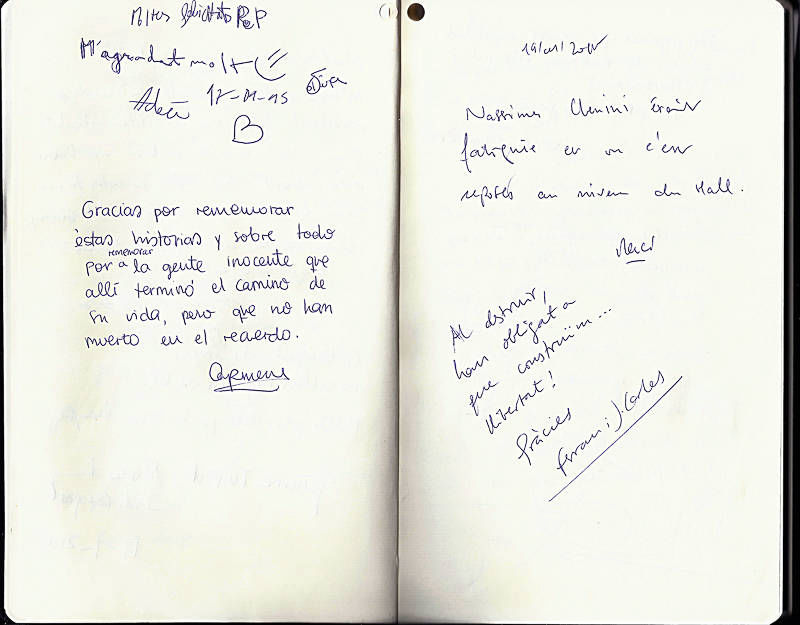 Moltes felicitats PeP
M'agradat molt
Adrià 17-11-15
Gracias por rememorar
éstas historias y sobre todo
rememorar
por a la gente inocente que
allí terminó el camino de
su vida, pero que no han
muerto en el recuerdo.
Carmene
(1)
Nassima Chenini étais
fatiguée et on c'est
reposés au niveau du Hall.
Merci
Al destruir,
han obligat a
que construïm...
llibertat!
Gràcies
Ferran i J. Carles